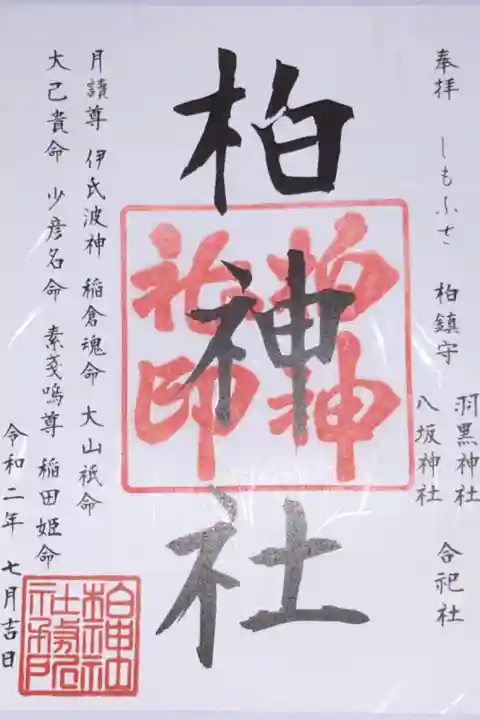 奉拝 しもふさ 柏鎮守
羽黒神社
八坂神社
合祀社
柏神社
柏神社印
月讀尊 伊氐波神 稲倉魂命 大山祇命
大己貴命 少彦名命 素戔嗚尊 稲田姫命
令和二年 七月吉日
柏神社
社務所印